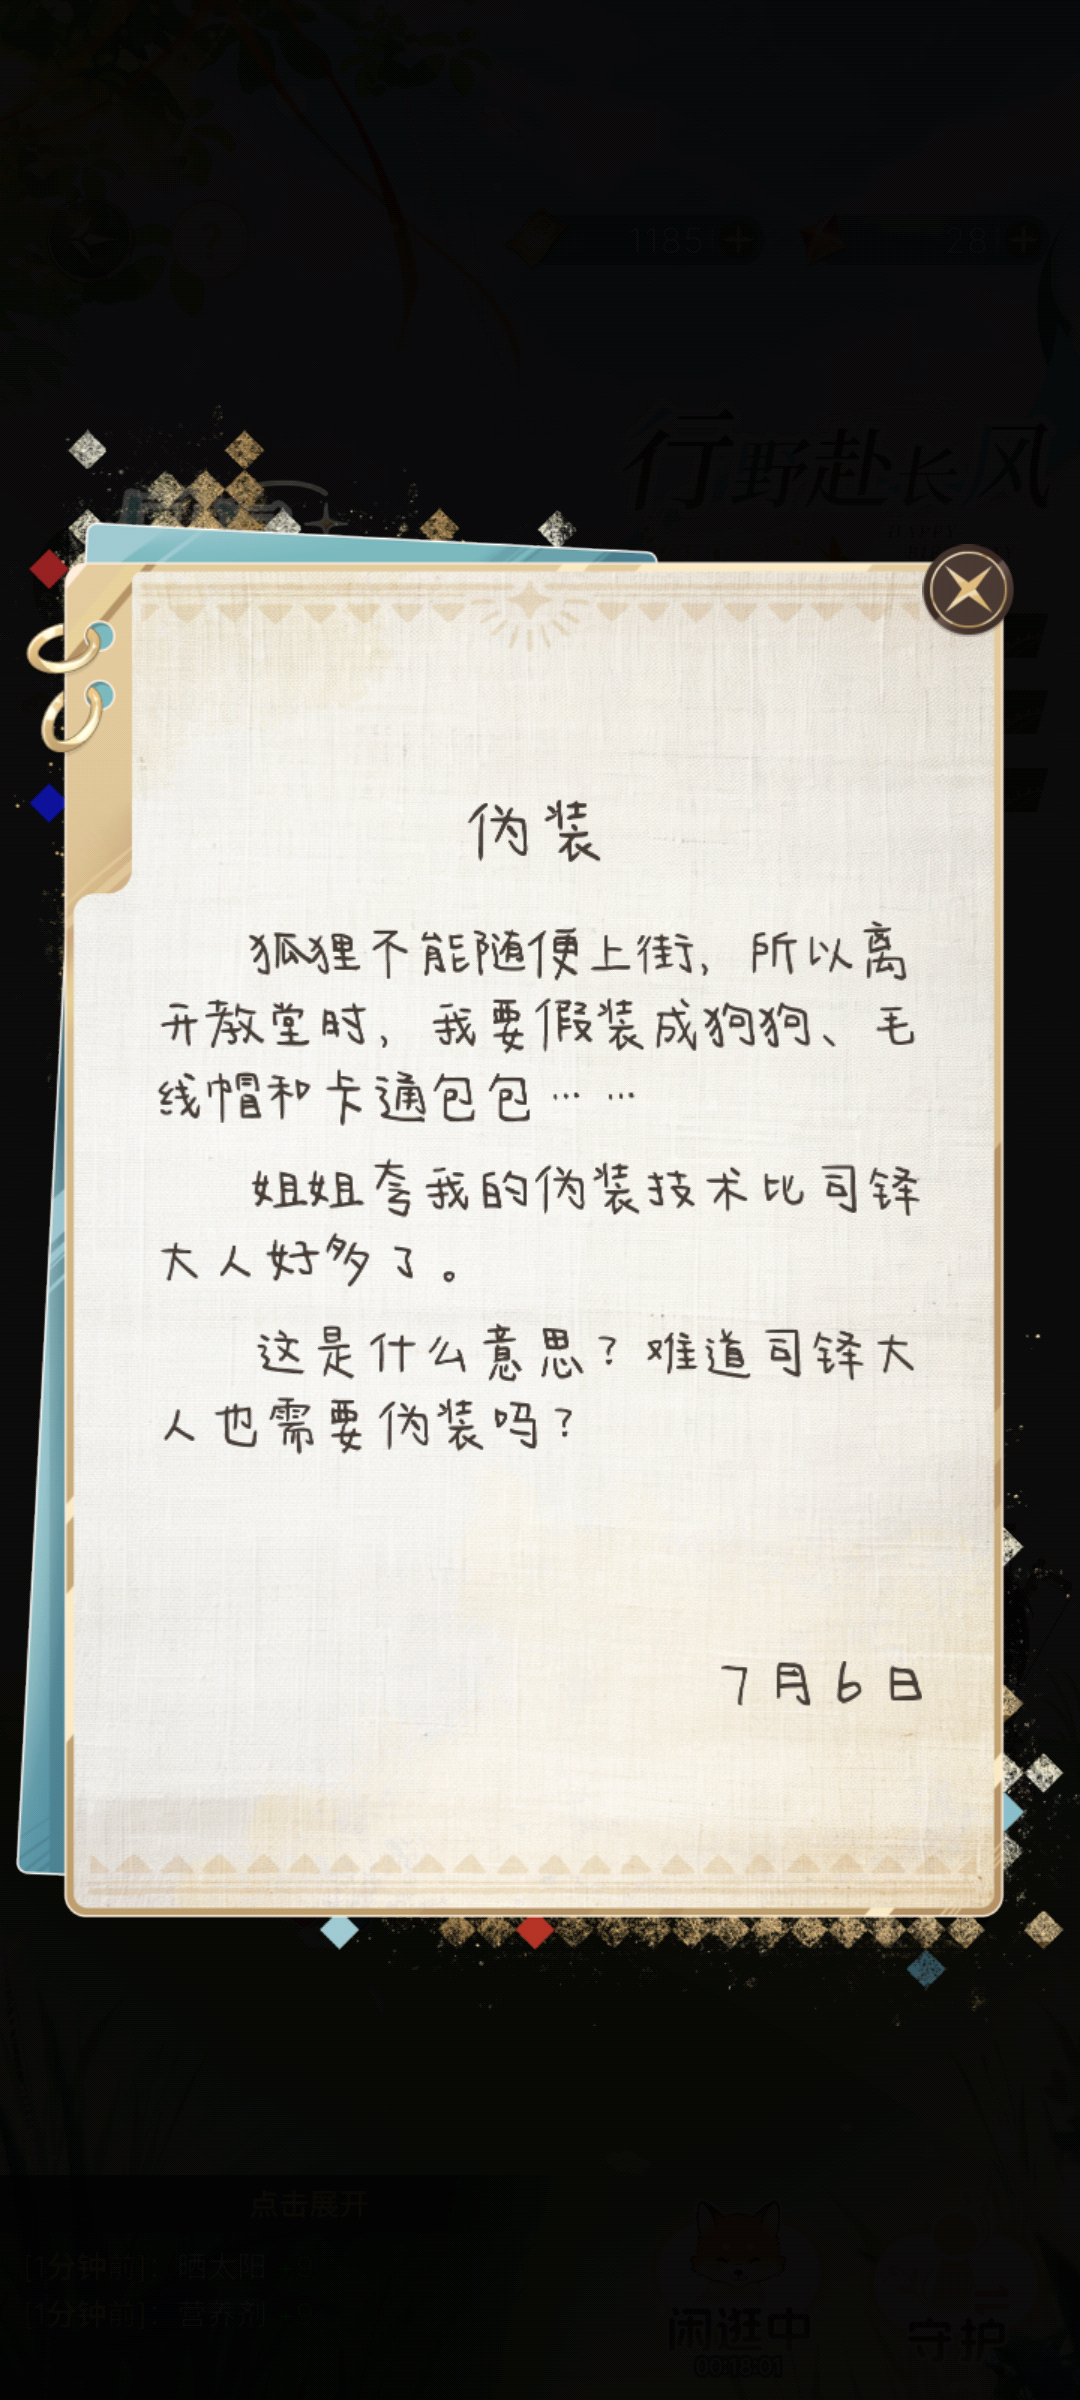 1185
28
行野赴长风
伪装
狐狸不能随便上街，所以离
开教堂时，我要假装成狗狗、毛
线帽和卡通包包……
姐姐夸我的伪装技术比司铎
大人好多了。
这是什么意思？难道司铎大
人也需要伪装吗？
7月6日
点击展开
[1分钟前]：晒太阳
[1分钟前]：营养剂
闲逛中
守护
00:18:01